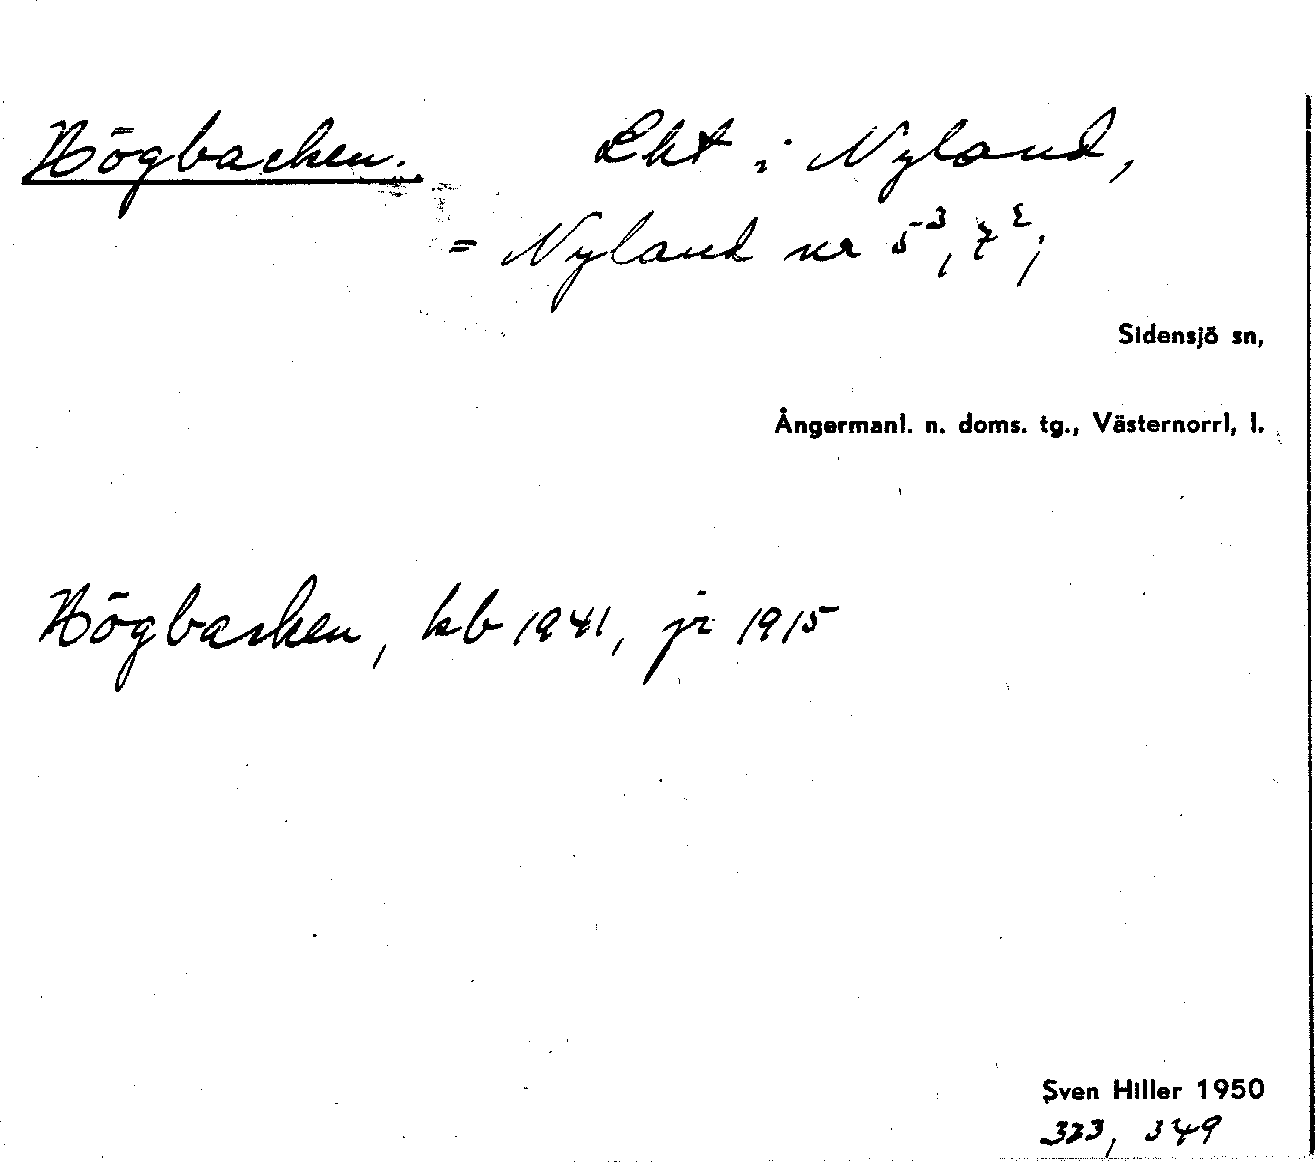 Högbacken. Lht i Nyland,
= Nyland nr 5³, 7²,
Sidensjö sn,
Ångermanl. n. doms. tg., Västernorrl, l.
Högbacken, kb 1941, jr 1915
Sven Hiller 1950
323, 349